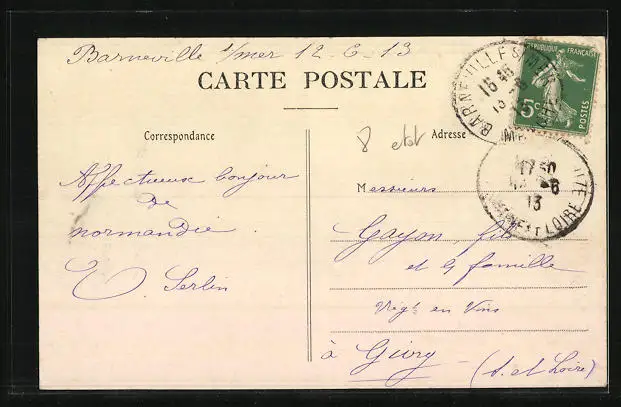 Barneville s/mer 12-6-13
CARTE POSTALE
Correspondance
Adresse
Affectueux bonjour
de
normandie.
Serbin
Messieurs
Gayom, fils
et famille
Négt en Vins
à Givry
(S. et Loire)
REPUBLIQUE FRANÇAISE
5c
POSTES
BARNEVILLE S MER
16 45
13
17 50
13
ET LOIRE